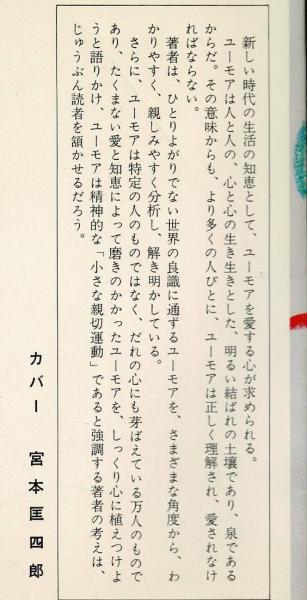 新しい時代の生活の知恵として、ユーモアを愛する心が求められる。
ユーモアは人と人の、心と心の生き生きとした、明るい結ばれの土壌であり、泉である
からだ。その意味からも、より多くの人びとに、ユーモアは正しく理解され、愛されなけ
ればならない。
著者は、ひとりよがりでない世界の良識に通ずるユーモアを、さまざまな角度から、わ
かりやすく、親しみやすく分析し、解き明かしている。
さらに、ユーモアは特定の人のものではなく、だれの心にも芽ばえている万人のもので
あり、たくまない愛と知恵によって磨きのかかったユーモアを、しっくり心に植えつけよ
うと語りかけ、ユーモアは精神的な「小さな親切運動」であると強調する著者の考えは、
じゅうぶん読者を頷かせるだろう。
カバー　宮本匡四郎